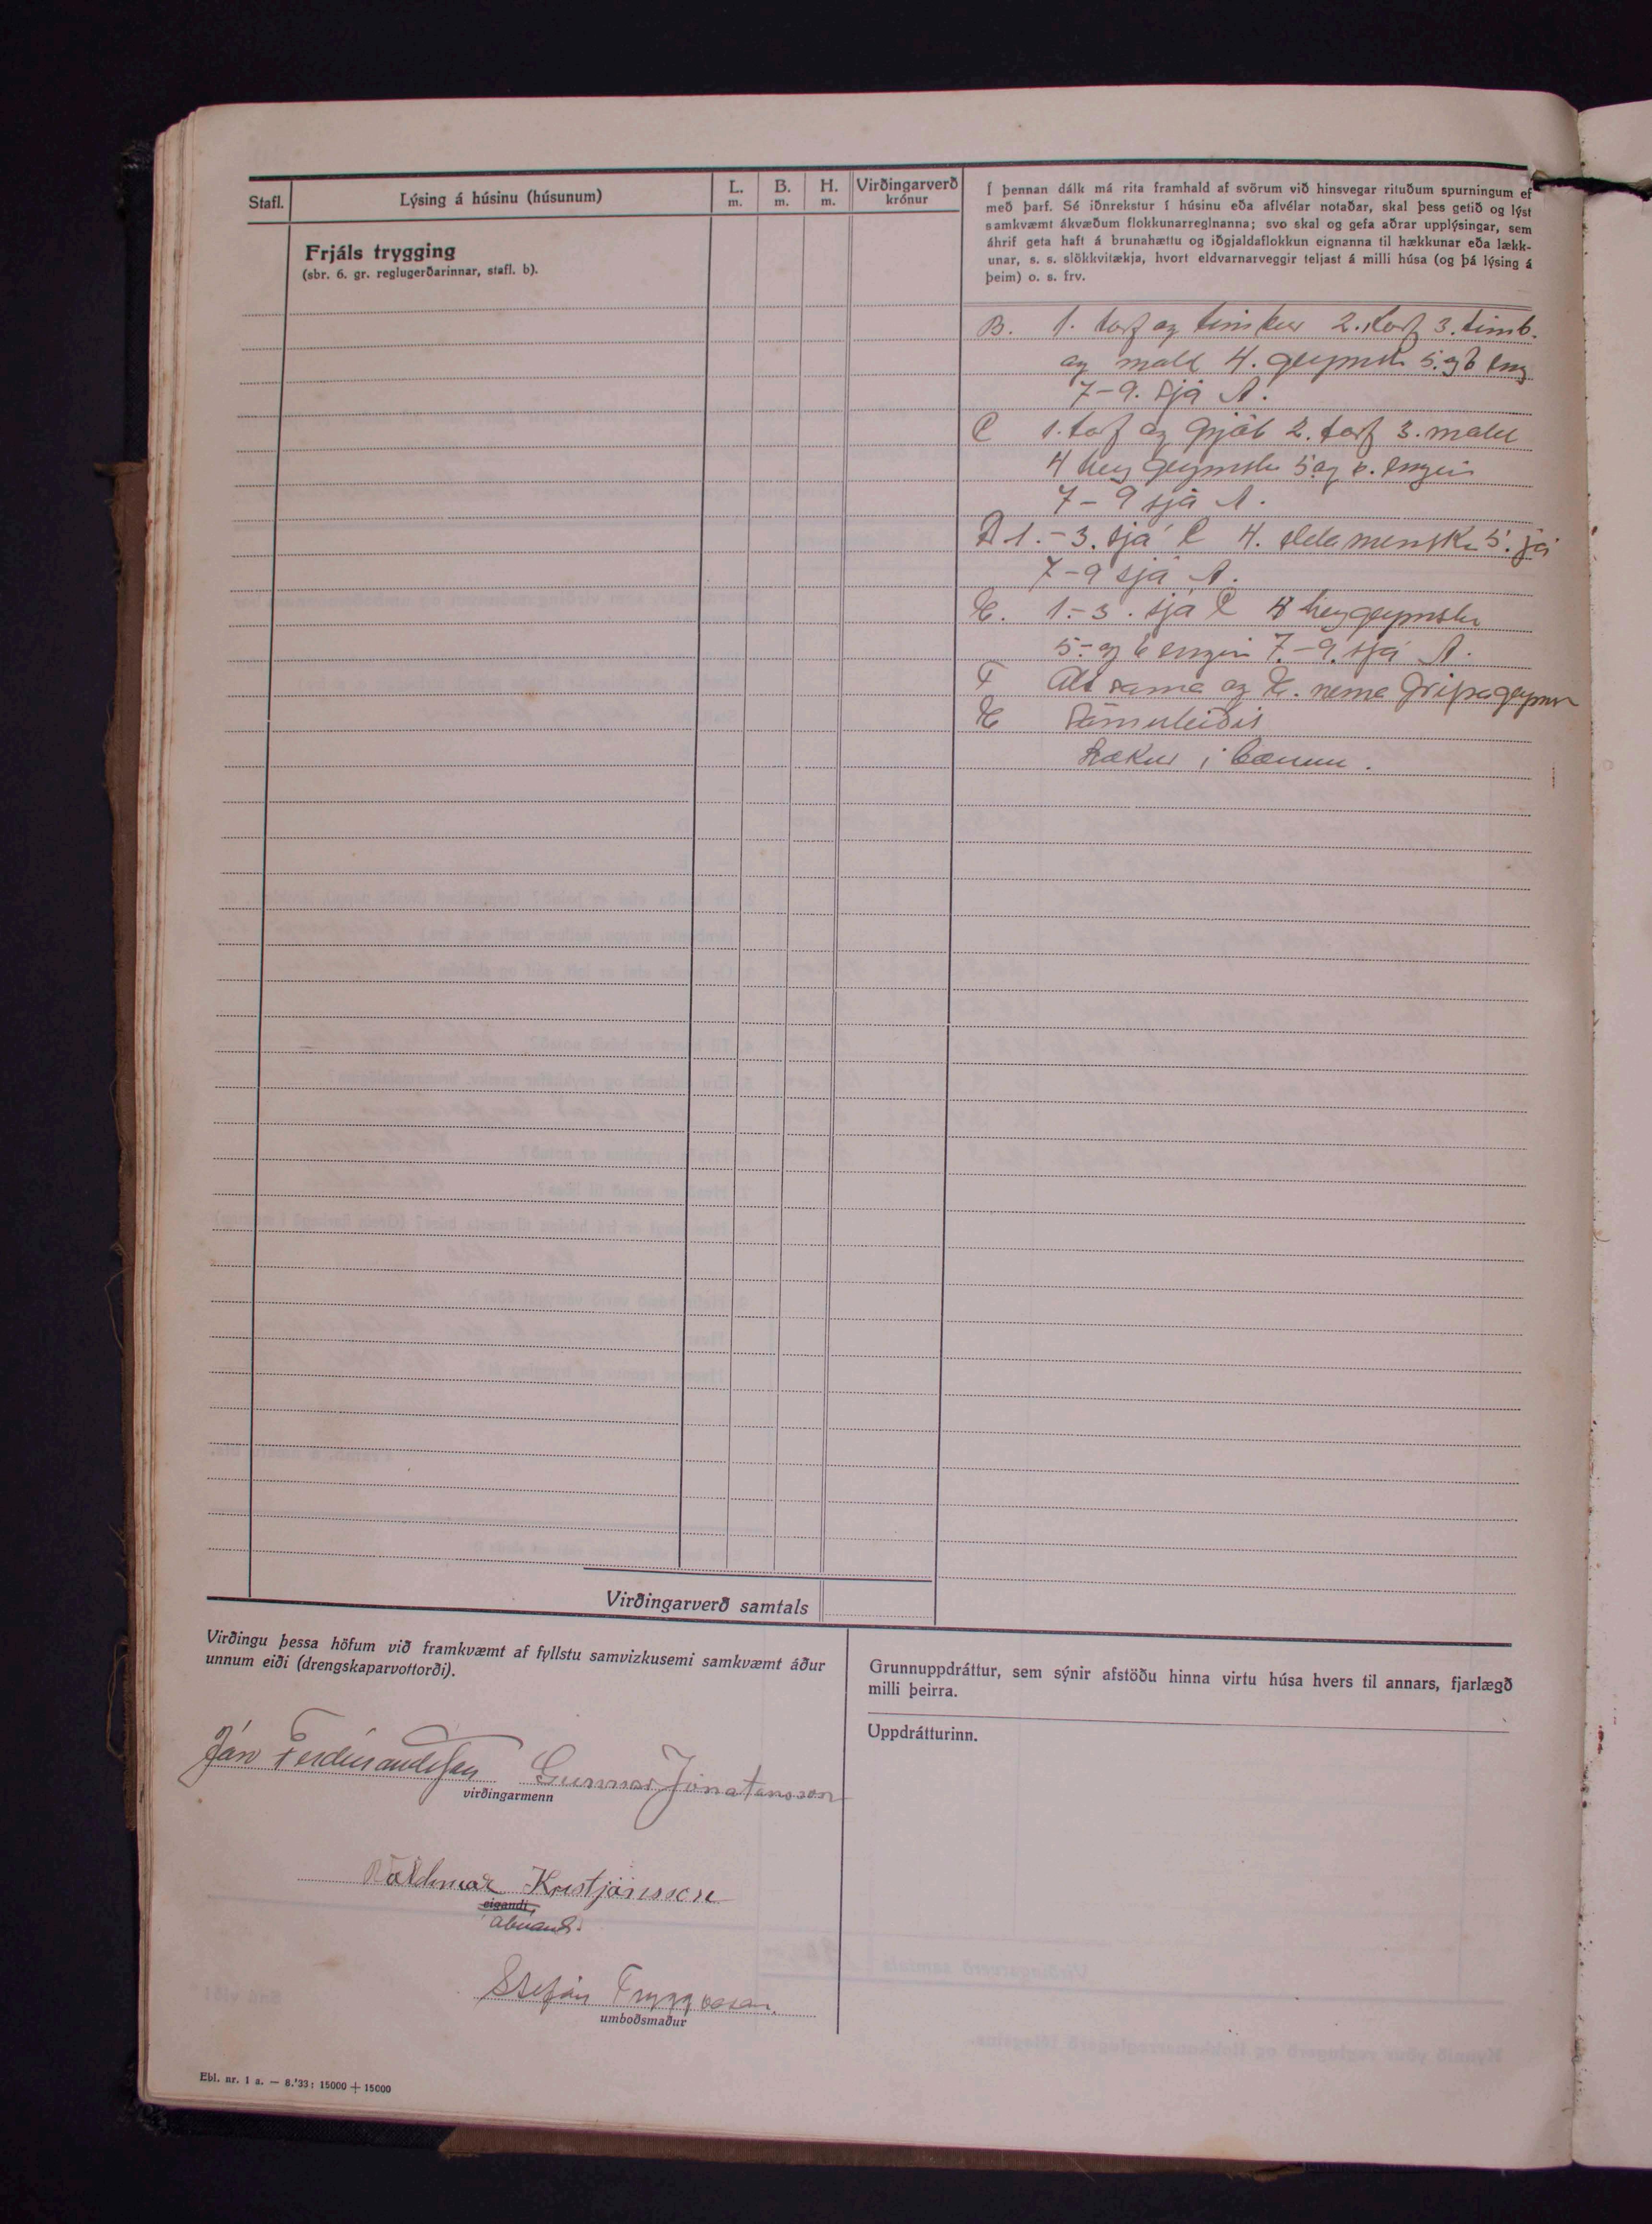 Stafl.
Lýsing á húsinu (húsunum)
L.
m.
B.
m.
H.
m.
Virðingarverð
krónur
Frjáls trygging
(sbr. 6. gr. reglugerðarinnar, stafl. b).
Í þennan dálk má rita framhald af svörum við hinsvegar rituðum spurningum ef
með þarf. Sé iðnrekstur í húsinu eða aflvélar notaðar, skal þess getið og lýst
samkvæmt ákvæðum flokkunarreglnanna; svo skal og gefa aðrar upplýsingar, sem
áhrif geta haft á brunahættu og iðgjaldaflokkun eignanna til hækkunar eða lækk-
unar, s. s. slökkvitækja, hvort eldvarnarveggir teljast á milli húsa (og þá lýsing á
þeim) o. s. frv.
B. 1. torf og timbur 2. torf 3. timb.
og mold 4. geymsla 5. og 6 eng
7-9. sjá A.
C 1. torf og grjót 2. torf 3. mold
4 hey geymsla 5 og 6. engin
7-9 sjá A.
D 1.-3. sjá C 4. eldamenska 5. já
7-9 sjá A.
E. 1.-3. sjá C 4 heygeymsla
5.- og 6 engin 7.-9. sjá A.
F Alt sama og E. nema gripageymsl
Sömuleiðis
Lækur í bænum.
Virðingarverð samtals
Virðingu þessa höfum við framkvæmt af fyllstu samvizkusemi samkvæmt áður
unnum eiði (drengskaparvottorði).
Jón Ferdinandsson Gunnar Jónatansson
virðingarmenn
Valdimar Kristjánsson
eigandi,
ábúandi.
Stefán Tryggvason.
umboðsmaður
Grunnuppdráttur, sem sýnir afstöðu hinna virtu húsa hvers til annars, fjarlægð
milli þeirra.
Uppdrátturinn.
Ebl. nr. 1 a. — 8.'33; 15000 + 15000